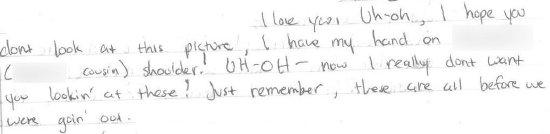 I love you. Uh-oh, I hope you
dont look at this picture, I have my hand on
( cousin) shoulder! UH-OH- now I really dont want
you lookin' at these! Just remember, these are all before we
were goin' out.